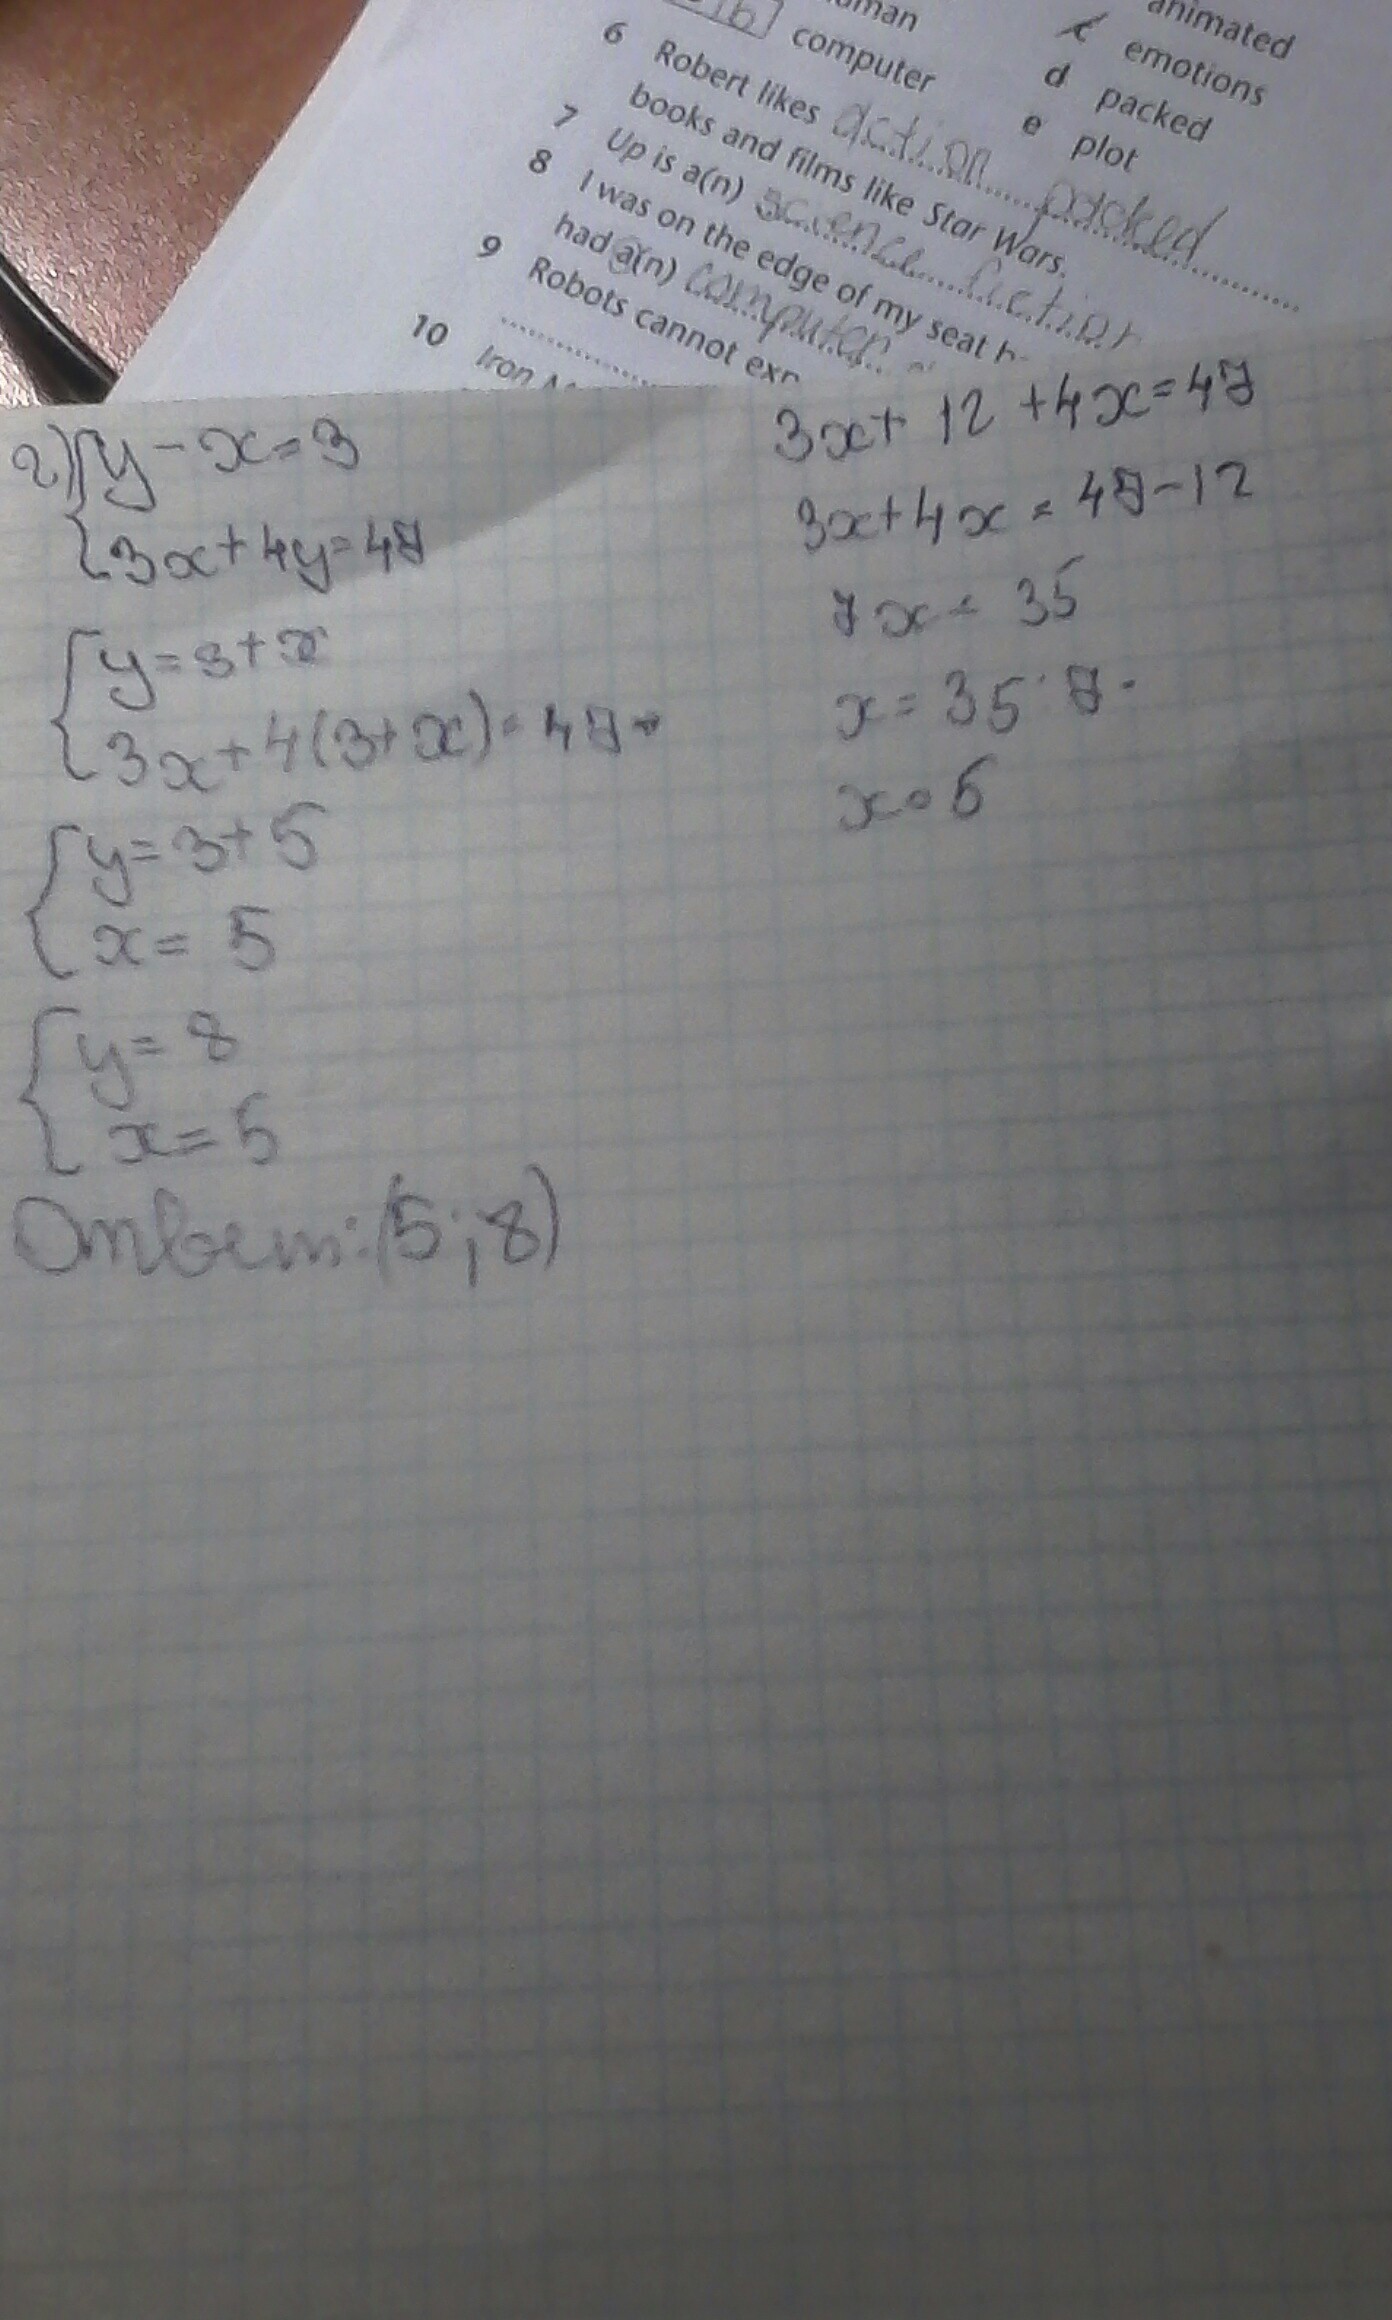 animated
human
emotions
computer
d packed
e plot
6 Robert likes action packed
books and films like Star Wars.
7 Up is a(n) science fiction
8 I was on the edge of my seat
had a(n) computer
9 Robots cannot
10 Iron
2) { y - x = 3
3x + 4y = 47
{ y = 3 + x
3x + 4(3 + x) = 47
{ y = 3 + 5
x = 5
{ y = 8
x = 5
Ответ: (5; 8)
3x + 12 + 4x = 47
3x + 4x = 47 - 12
7x = 35
x = 35 : 7
x = 5